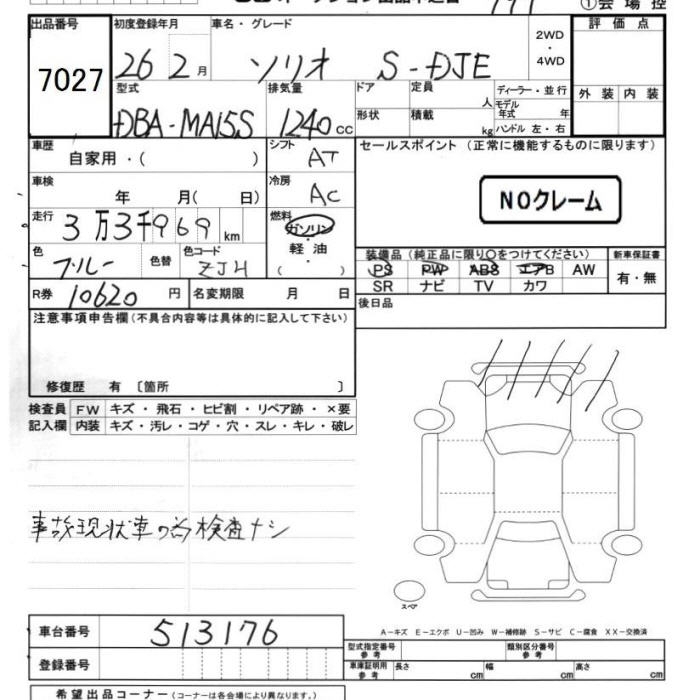 ①会場控
出品番号 7027
初度登録年月 26 2月
車名・グレード ソリオ S-DJE
2WD・4WD
評価点
外装 内装
型式 DBA-MA15S
排気量 1240cc
ドア
定員 人
ディーラー・並行
形状
積載 kg
モデル年式 年
ハンドル 左・右
車歴 自家用・( )
シフト AT
セールスポイント (正常に機能するものに限ります)
NOクレーム
車検 年 月( 日)
冷房 AC
走行 3万3千969km
燃料 ガソリン・軽油 ( )
色 ブルー 色替
色コード ZJH
装備品 (純正品に限り○をつけてください)
新車保証書
PS PW ABS エアB AW
有・無
SR ナビ TV カワ
R券 10620円
名変期限 月 日
後日品
注意事項申告欄(不具合内容等は具体的に記入して下さい)
修復歴 有 〔箇所 〕
検査員 FW キズ・飛石・ヒビ割・リペア跡・×要
記入欄 内装 キズ・汚レ・コゲ・穴・スレ・キレ・破レ
事故現状車の為検査ナシ
スペア
A-キズ E-エクボ U-凹み W-補修跡 S-サビ C-腐食 XX-交換済
車台番号 513176
型式指定番号 参考
類別区分番号 参考
登録番号
車庫証明用 参考 長さ cm 幅 cm 高さ cm
希望出品コーナー (コーナーは各会場により異なります。)